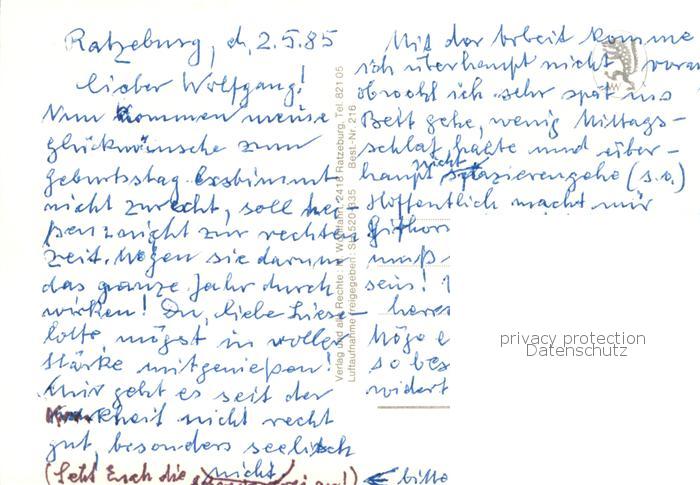 Ratzeburg, d. 2.5.85
lieber Wolfgang!
Nun kommen meine
Glückwünsche zum
Geburtstag bestimmt
nicht zurecht, soll hei-
ßen: nicht zur rechten
Zeit. Mögen sie darum
das ganze Jahr durch
wirken! Du, liebe Liese-
lotte, mögst in voller
Stärke mitgenießen!
Mir geht es seit der
Krankheit nicht recht
gut, besonders seelisch
(Seht Euch die nicht an!) ← bitte
Verlag und alle Rechte: Wohlfahrt, 2418 Ratzeburg, Tel. 821 05
Luftaufnahme freigegeben: SH 520 1335 Best.-Nr. 216
Mit der Arbeit komme
ich überhaupt nicht voran
obwohl ich sehr spät ins
Bett gehe, wenig Mittags-
schlaf halte und über-
haupt nicht spazierengehe (s.o.)
Hoffentlich macht mir
Gifhor
muß-
sein!
heres
Möge e
so bes
widert
privacy protection
Datenschutz